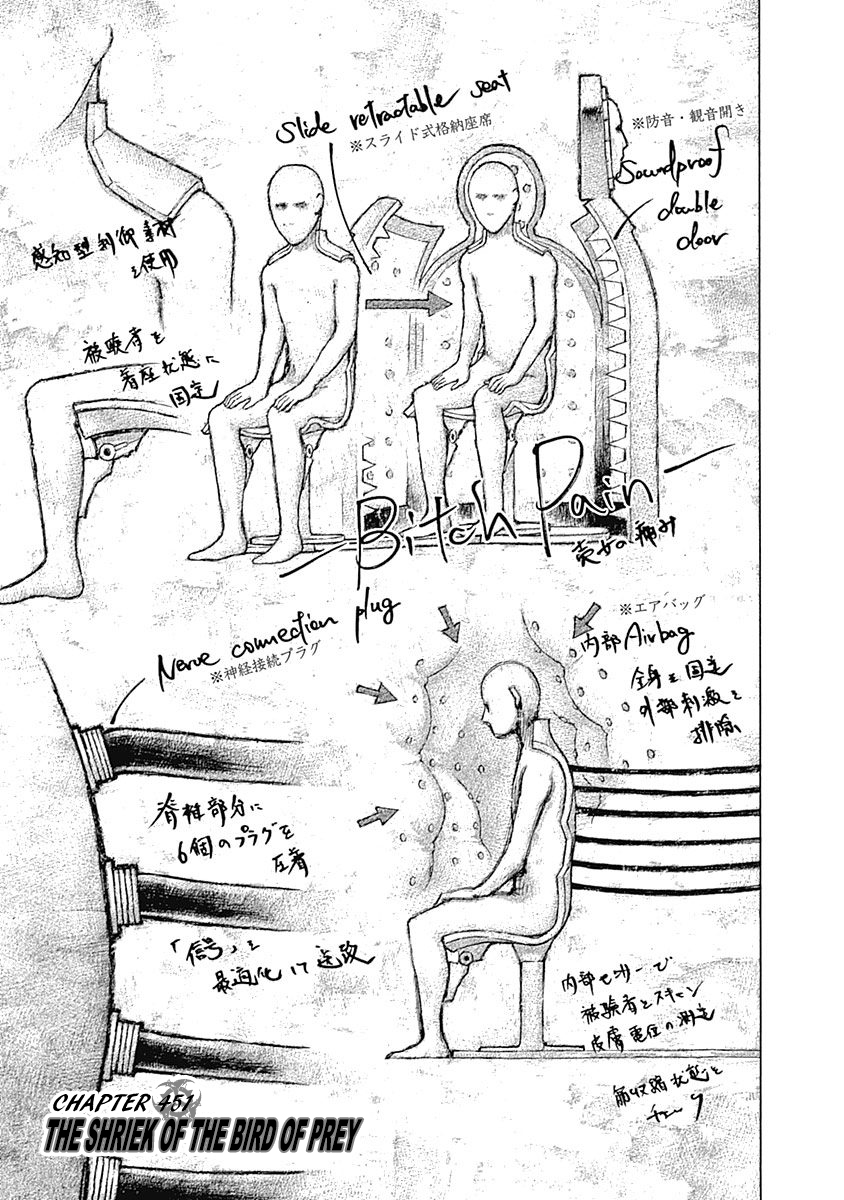 slide retractable seat
※スライド式格納座席
※防音・観音開き
Soundproof
double
door
感知型制御素材
を使用
被験者を
着座状態に
固定
Bitch Pain
売女の痛み
Nerve connection plug
※神経接続プラグ
※エアバッグ
内部 Airbag
全身を固定
外部刺激を
排除
脊椎部分に
6個のプラグを
圧着
「信号」を
最適化して送致
内部センサーで
被験者をスキャン
皮膚電位の測定
筋収縮状態を
CHAPTER 451
THE SHRIEK OF THE BIRD OF PREY